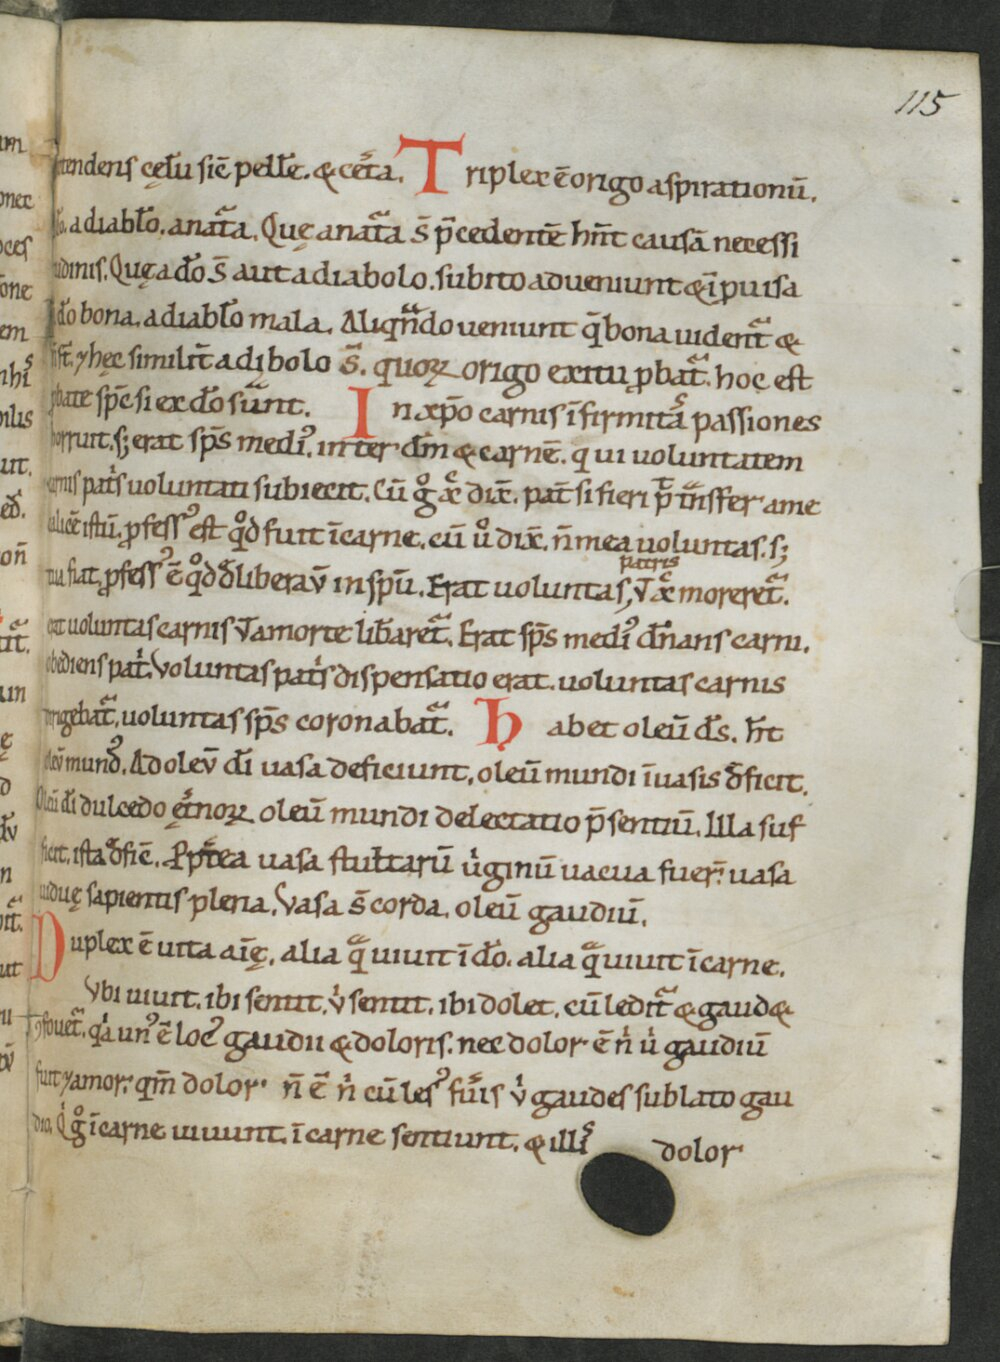 115
tendens cęlū sic̄ pellē. & cēta. Triplex ē origo aspirationū.
a diablo. a nat̄a. Quę a nat̄a s̄ p̄cedentē hn̄t causā necessi
tudinis. Quę a d̄o s̄ aut a diabolo. subito adueniunt & īpuisa
a d̄o bona. a diablo mala. Aliqn̄do ueniunt q̄ bona uident̄ &
hęc similit̄ a diabolo s̄. quoꝝ origo exitu ꝓbat̄. hoc est
ꝓbate sp̄c si ex d̄o sunt. In xp̄o carnis īfirmitas passiones
horruit. s; erat sp̄s medi᷒ inter dm̄ & carnē. qui uoluntatem
carnis pat̄s uoluntati subiecit. Cū g̊ dix̄. pat̄ si fieri p̄t t̄nsfer a me
calicē istū. ꝓfess᷒ est qd̊ fuit ī carne. cū ů dix̄. n̄ mea uoluntas. s;
tua fiat. ꝓfess᷒ ē qd̊ dliberav̄ in spū. Erat uoluntas patris ut moreret̄.
erat uoluntas carnis ut a morte libaret̄. Erat sp̄s medi᷒ dn̄ans carni.
obediens pat̄. Voluntas pat̄s dispensatio erat. uoluntas carnis
uoluntas sp̄s coronabat̄. Habet oleū ds̄. h̄t
oleū mund᷒. Ad olev̄ dī uasa deficiunt. oleū mundi ī uasis dficit.
Oleū dī dulcedo ęt̄noꝝ oleū mundi delectatio p̄sentiū. Illa suf
ficit. ista dficī. Ppt̄ea uasa stultarū uirginū uacua fuer̄. uasa
uiduę sapientis plena. Vasa s̄ corda. oleū gaudiū.
Duplex ē uita aīę. alia q̄ uiuit ī d̄o. alia q̄ uiuit ī carne.
Vbi uiuit. ibi sentit. ů sentit. ibi dolet. cū ledit̄ & gaud&
ꝯfouet̄. qa un᷒ ē loc᷒ gaudii & doloris. nec dolor ē n̄ ů gaudiū
fuit ⁊ amor. qm̄ dolor n̄ ē n̄ cū les᷒ fu̅is ů gaudes sublato gau
dio. Qi g̊ ī carne uiuunt. ī carne sentiunt. & illis dolor